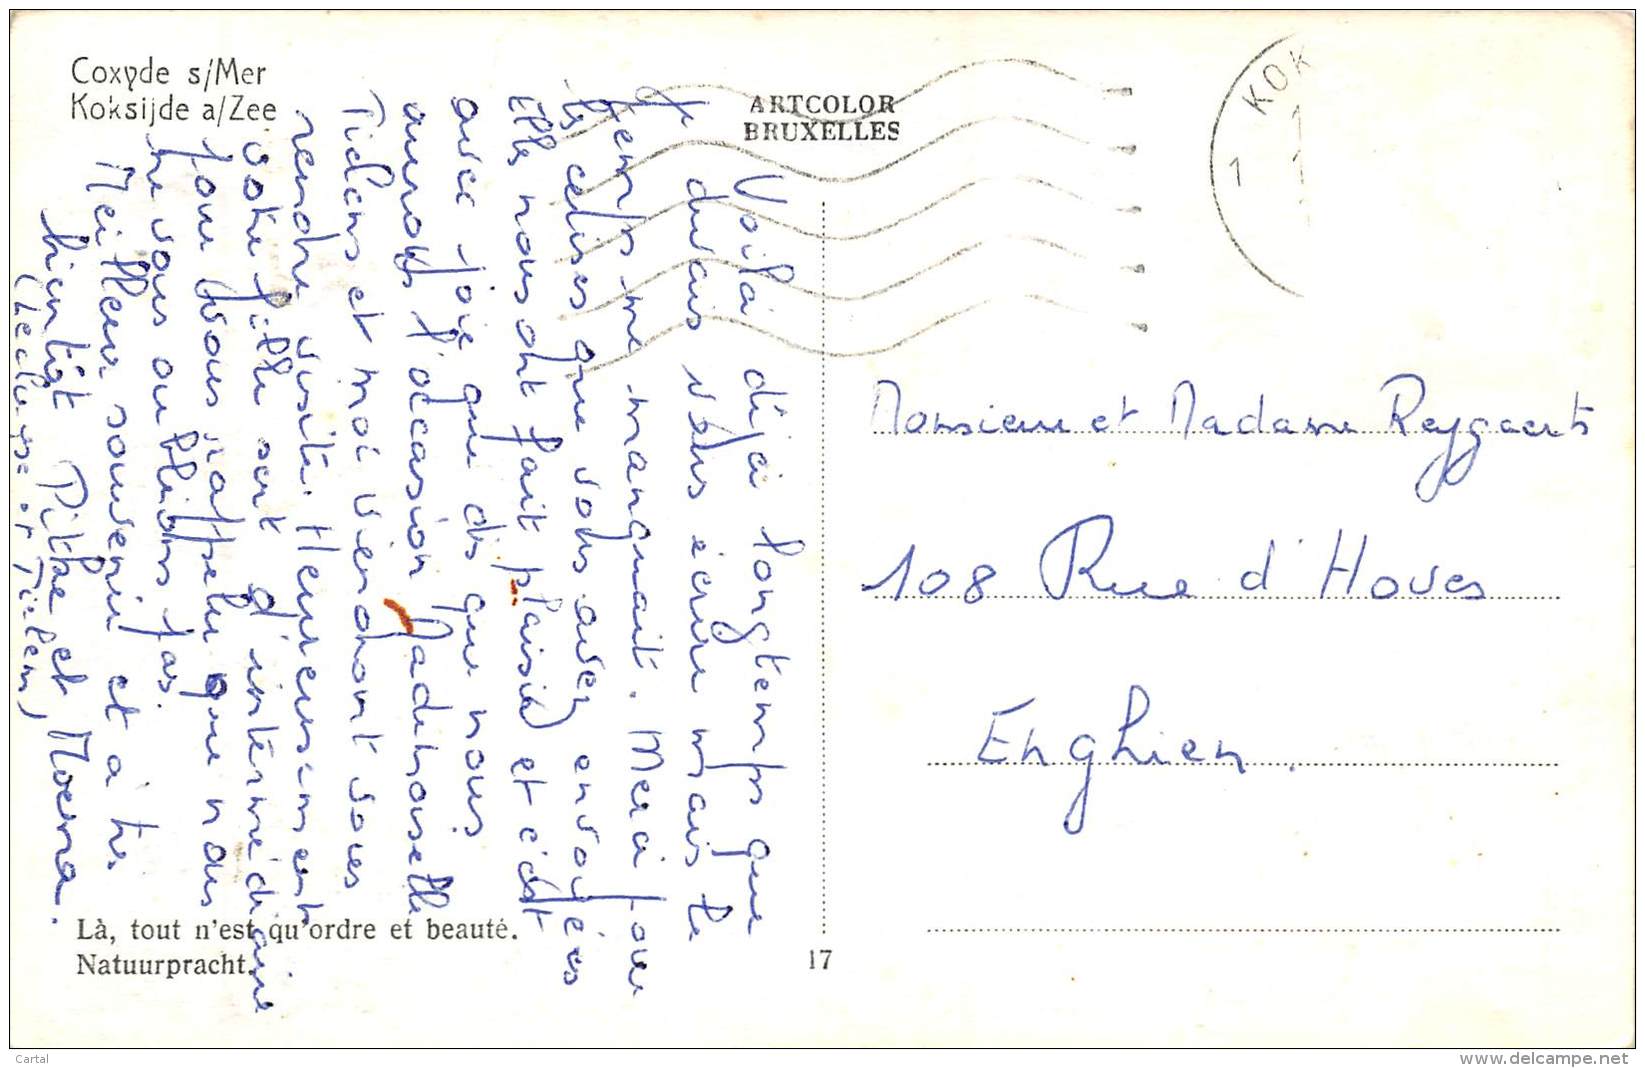 Coxyde s/Mer
Koksijde a/Zee
ARTCOLOR
BRUXELLES
KOK
Voilà déjà longtemps que
je devais vous écrire mais le
temps me manquait. Merci pour
les cerises que vous avez envoyées
Elles nous ont fait plaisir et c'est
avec joie que dès que nous
aurons l'occasion Mademoiselle
Tielens et moi viendront vous
rendre visite. Heureusement
votre fille sert d'intermédiaire
pour vous rappeler que nous
ne vous oublions pas.
Meilleur souvenir et à très
bientôt Pitje et Moena.
(Lecluyse et Tielens)
Monsieur et Madame Reygaerts
108 Rue d'Hoves
Enghien.
Là, tout n'est qu'ordre et beauté.
Natuurpracht.
17
Cartal
www.delcampe.net